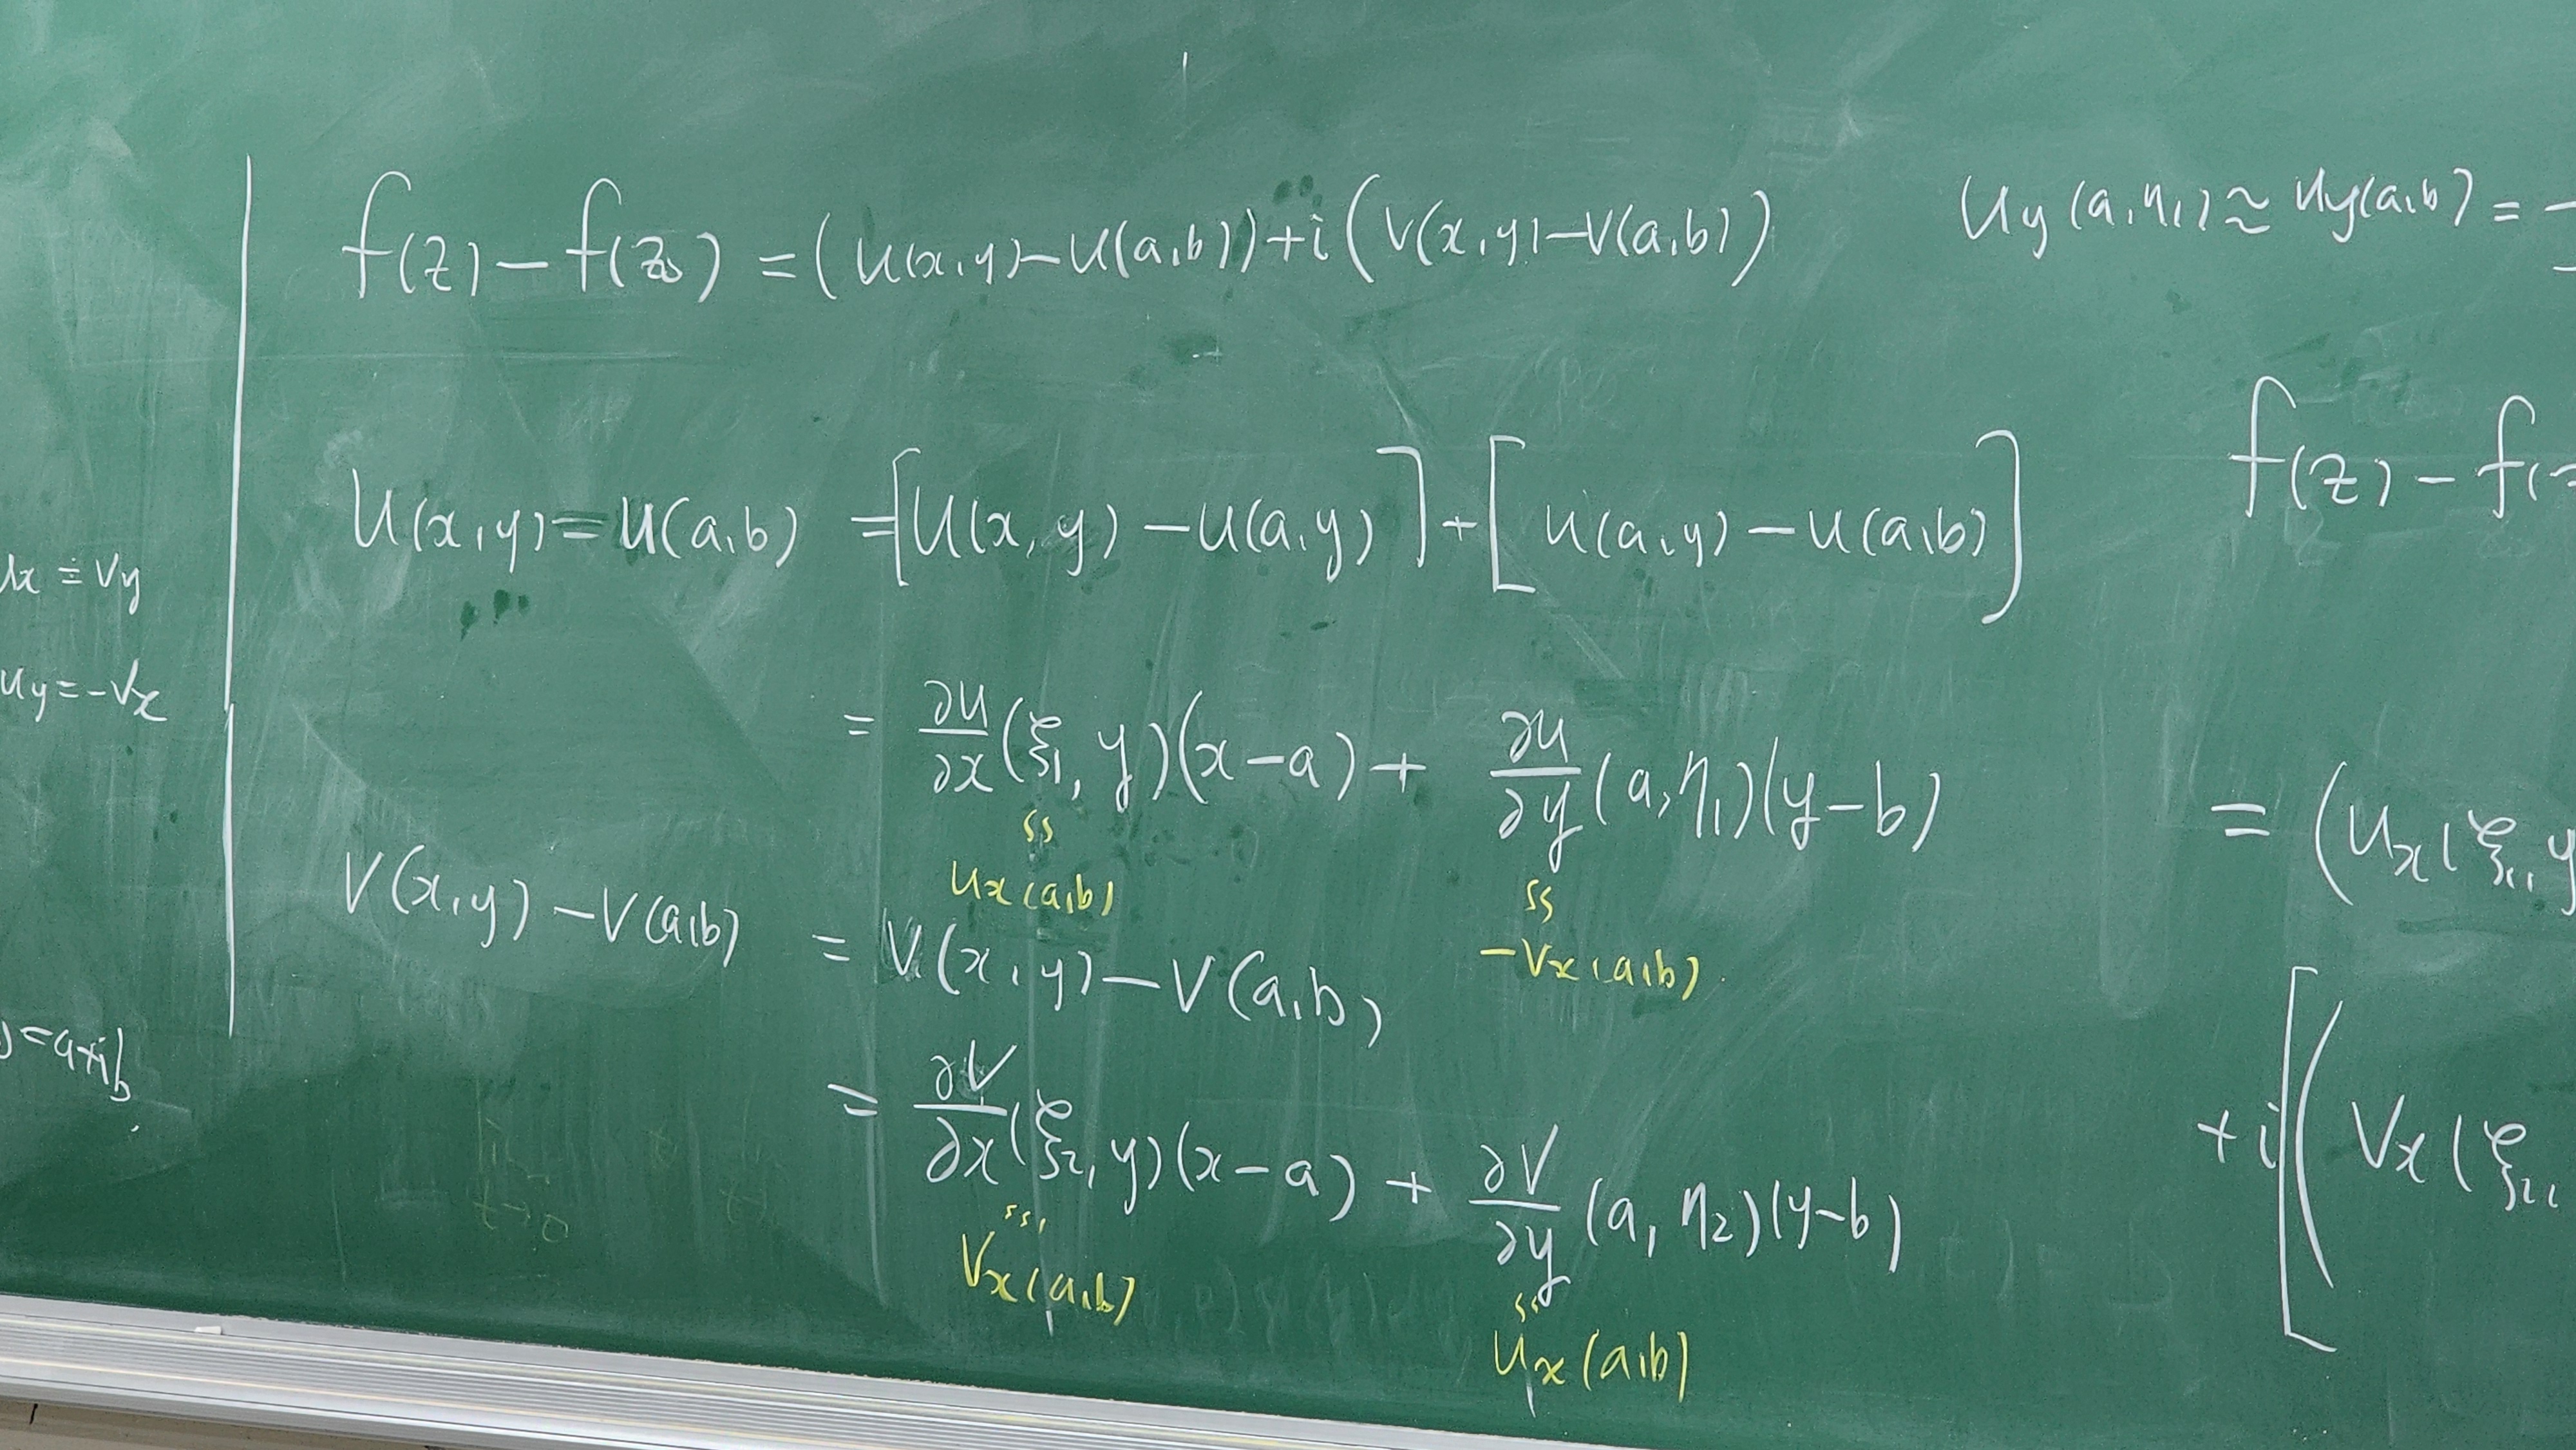 Ux = Vy
Uy = -Vx
= a+ib
f(z) - f(z₀) = (u(x,y) - u(a,b)) + i(v(x,y) - v(a,b))
U(x,y) = u(a,b) = [U(x,y) - u(a,y)] + [u(a,y) - u(a,b)]
= ∂u/∂x (ξ₁, y)(x-a) + ∂u/∂y (a, η₁)(y-b)
ss ss
Ux(a,b) -Vx(a,b)
V(x,y) - V(a,b) = V(x,y) - V(a,b)
= ∂V/∂x (ξ₂, y)(x-a) + ∂V/∂y (a, η₂)(y-b)
ss ss
Vx(a,b) Ux(a,b)
Uy(a,η₁) ≈ Uy(a,b) =
f(z) - f(
= (Ux(ξ₁, y
+ i[(Vx(ξ₂,